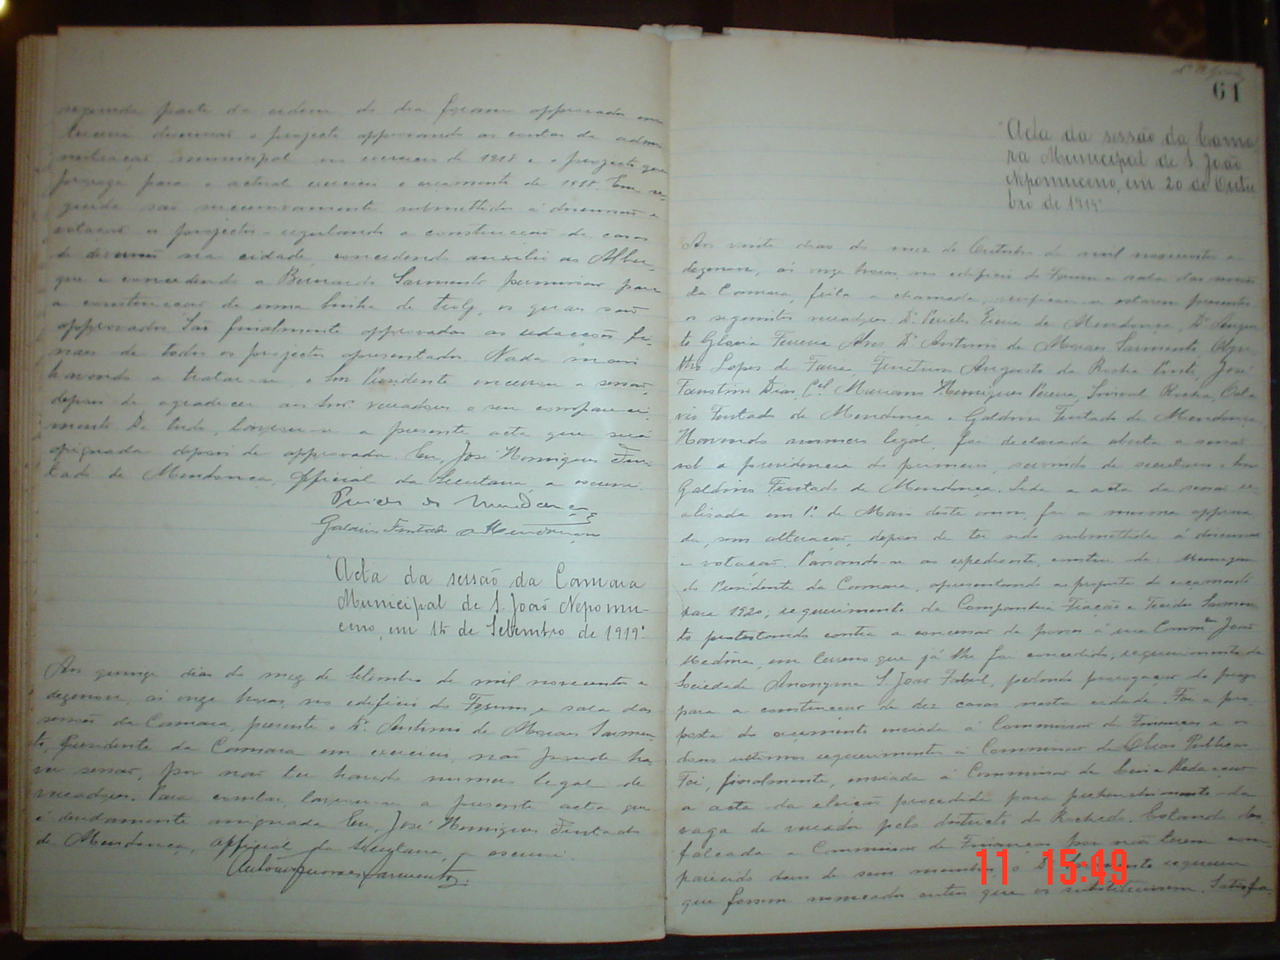 segunda parte da ordem do dia foram approvados em
terceira discussão o projecto approvando as contas da admi-
nistração municipal no exercicio de 1918 e o projecto que
proroga para o actual exercicio o orçamento de 1918. Em se-
guida são successivamente submettidos á discussão e
votação os projectos regulando a construcção de casas
na cidade, concedendo auxilio ao Alber-
gue e concedendo a Bernardo Sarmento permissão para
a construcção de uma linha de os quaes são
approvados. São finalmente approvadas as redacções fi-
naes de todos os projectos apresentados. Nada mais
havendo a tratar-se, o Snr. Presidente encerra a sessão,
depois de agradecer aos Snrs. vereadores o seu compareci-
mento. De tudo, lavrou-se a presente acta que será
assignada depois de approvada. Eu, José Henriques Fur-
tado de Mendonça, official da Secretaria, a escrevi.
Mendonça
Galdino Furtado de Mendonça
"Acta da sessão da Camara
Municipal de S. João Nepomu-
ceno, em 15 de Setembro de 1919"
Aos quinze dias do mez de Setembro de mil novecentos e
dezenove, ás onze horas, no edificio do Forum e sala das
sessões da Camara, presente o Dr. Antonio de Moraes Sarmen-
to, Presidente da Camara em exercicio, não houve
sessão, por não ter havido numero legal de
vereadores. Para constar, lavrou-se a presente acta que
é devidamente assignada. Eu, José Henriques Furtado
de Mendonça, official da Secretaria, a escrevi.
Antonio Moraes Sarmento
61
"Acta da sessão da Cama-
ra Municipal de S. João
Nepomuceno, em 20 de Outu-
bro de 1919"
Aos vinte dias do mez de Outubro de mil novecentos e
dezenove, ás onze horas, no edificio do Forum e sala das sessões
da Camara, feita a chamada, verificou-se estarem presentes
os seguintes vereadores: Dr. Pericles Vieira de Mendonça, Dr. Augus-
to Gloria Ferreira Alves, Dr. Antonio de Moraes Sarmento,
Lopes de Faria, Augusto da Rocha José
Faustino Dias, Cel. Mariano Henriques Pereira, Rocha, Octa-
vio Furtado de Mendonça e Galdino Furtado de Mendonça.
Havendo numero legal, foi declarada aberta a sessão
sob a presidencia do primeiro, servindo de secretario o Snr.
Galdino Furtado de Mendonça. Lida a acta da sessão re-
alisada em 1º de Maio deste anno, foi a mesma approva-
da, sem alteração, depois de ter sido submettida á discussão
e votação. Passando-se ao expediente, constou de: Mensagem
do Presidente da Camara, apresentando a proposta de orçamento
para 1920; requerimento da Companhia Fiação e Tecidos Sarmen-
to protestando contra a concessão de á rua Commr. João
Medina, em terreno que já lhe foi concedido; requerimento da
Sociedade Anonyma S. João Fabril, pedindo prorogação do praso
para a construcção de dez casas nesta cidade. Foi a pro-
posta de orçamento enviada á Commissão de Finanças e os
dous ultimos requerimentos á Commissão de Obras Publicas.
Foi, finalmente, enviada á Commissão de Leis e Redacção
a acta da eleição procedida para preenchimento da
vaga de vereador pelo districto de Rochedo. Estando des-
falcada a Commissão de Finanças por não terem com-
parecido dous de seus membros, o requereu
que fossem nomeados outros que os substituissem. Satisfa-
11 15:49